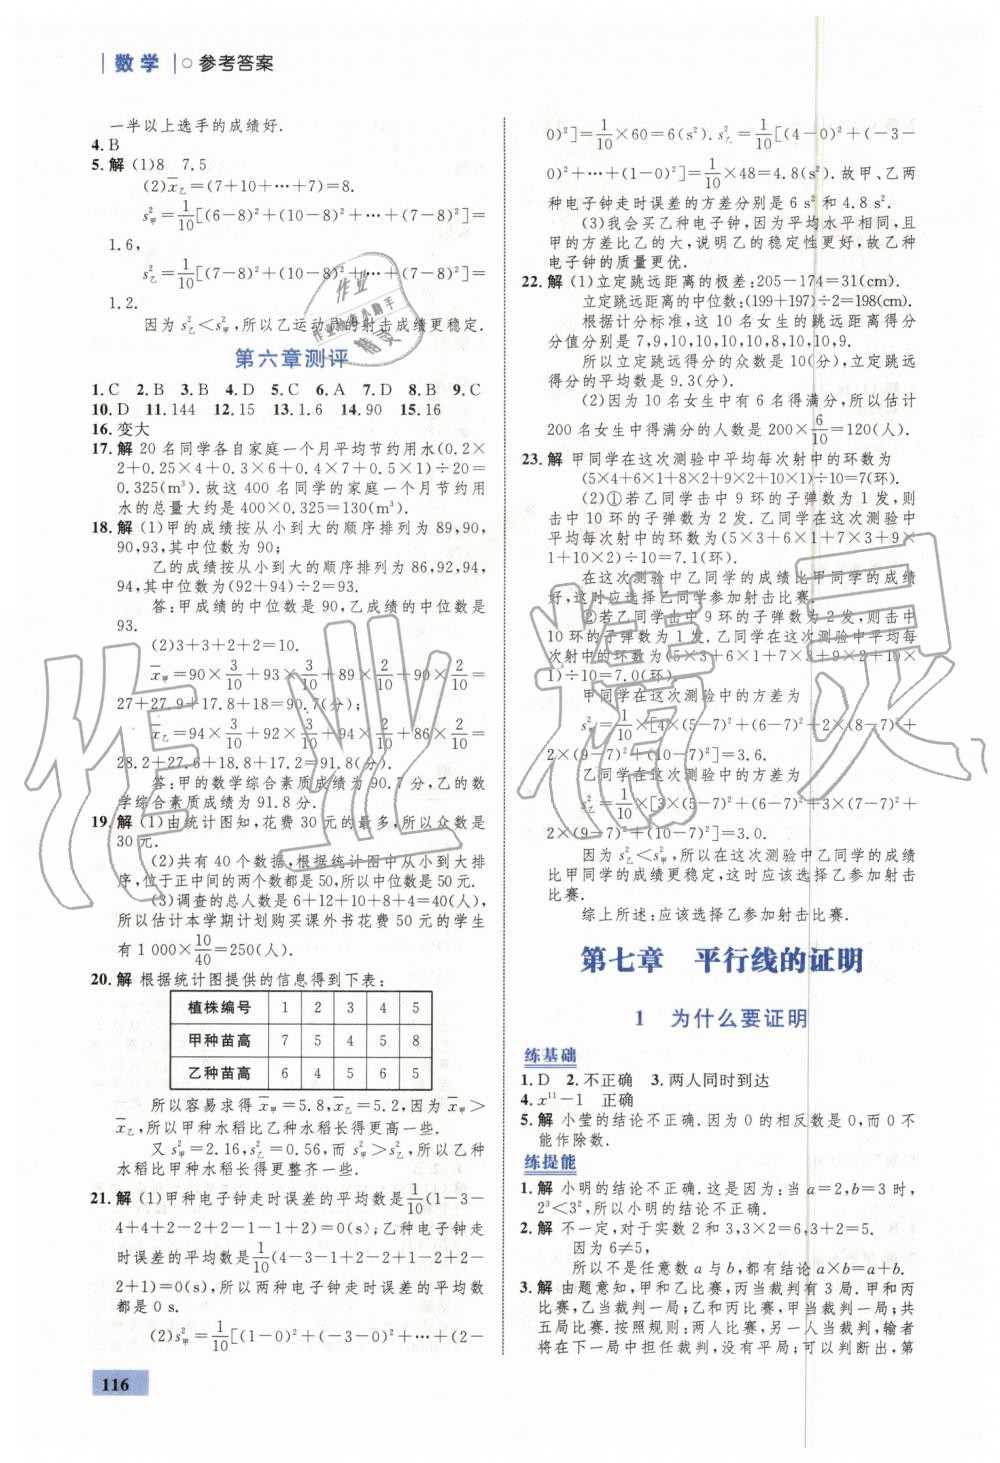 数学 参考答案
一半以上选手的成绩好.
4. B
5. 解 (1)8 7.5
(2)x̅乙=(7+10+…+7)=8.
s²甲=1/10[(6-8)²+(10-8)²+…+(7-8)²]=
1.6,
s²乙=1/10[(7-8)²+(10-8)²+…+(7-8)²]=
1.2.
因为 s²乙<s²甲,所以乙运动员的射击成绩更稳定.
第六章测评
1. C 2. B 3. B 4. D 5. C 6. A 7. D 8. B 9. C
10. D 11. 144 12. 15 13. 1.6 14. 90 15. 16
16. 变大
17. 解 20 名同学各自家庭一个月平均节约用水(0.2×
2+0.25×4+0.3×6+0.4×7+0.5×1)÷20=
0.325(m³).故这 400 名同学的家庭一个月节约用
水的总量大约是 400×0.325=130(m³).
18. 解 (1)甲的成绩按从小到大的顺序排列为 89,90,
90,93,其中位数为 90;
乙的成绩按从小到大的顺序排列为 86,92,94,
94,其中位数为(92+94)÷2=93.
答:甲成绩的中位数是 90,乙成绩的中位数是
93.
(2)3+3+2+2=10.
x̅甲=90×3/10+93×3/10+89×2/10+90×2/10=
27+27.9+17.8+18=90.7(分);
x̅乙=94×3/10+92×3/10+94×2/10+86×2/10=
28.2+27.6+18.8+17.2=91.8(分).
答:甲的数学综合素质成绩为 90.7 分,乙的数
学综合素质成绩为 91.8 分.
19. 解 (1)由统计图知,花费 30 元的最多,所以众数是
30 元.
(2)共有 40 个数据,根据统计图中从小到大排
序,位于正中间的两个数都是 50,所以中位数是 50 元.
(3)调查的总人数是 6+12+10+8+4=40(人),
所以估计本学期计划购买课外书花费 50 元的学生
有 1 000×10/40=250(人).
20. 解 根据统计图提供的信息得到下表:
植株编号 1 2 3 4 5
甲种苗高 7 5 4 5 8
乙种苗高 6 4 5 6 5
所以容易求得 x̅甲=5.8,x̅乙=5.2,因为 x̅甲>
x̅乙,所以甲种水稻比乙种水稻长得更高一些.
又 s²甲=2.16,s²乙=0.56,而 s²甲>s²乙,所以乙种水
稻比甲种水稻长得更整齐一些.
21. 解 (1)甲种电子钟走时误差的平均数是1/10(1-3-
4+4+2-2+2-1-1+2)=0(s);乙种电子钟走
时误差的平均数是1/10(4-3-1+2-2+1-2+2-
2+1)=0(s),所以两种电子钟走时误差的平均数
都是 0 s.
(2)s²甲=1/10[(1-0)²+(-3-0)²+…+(2-
0)²]=1/10×60=6(s²).s²乙=1/10[(4-0)²+(-3-
0)²+…+(1-0)²]=1/10×48=4.8(s²).故甲、乙两
种电子钟走时误差的方差分别是 6 s²和 4.8 s².
(3)我会买乙种电子钟,因为平均水平相同,且
甲的方差比乙的大,说明乙的稳定性更好,故乙种
电子钟的质量更优.
22. 解 (1)立定跳远距离的极差:205-174=31(cm).
立定跳远距离的中位数:(199+197)÷2=198(cm).
根据计分标准,这 10 名女生的跳远距离得分
分别是 7,9,10,10,10,8,10,10,9.
所以立定跳远得分的众数是 10(分),立定跳远得
分的平均数是 9.3(分).
(2)因为 10 名女生中有 6 名得满分,所以估计
200 名女生中得满分的人数是 200×6/10=120(人).
23. 解 甲同学在这次测验中平均每次射中的环数为
(5×4+6×1+8×2+9×2+10×1)÷10=7(环).
(2)①若乙同学击中 9 环的子弹数为 1 发,则
击中 10 环的子弹数为 2 发.乙同学在这次测验中
平均每次射中的环数为(5×3+6×1+7×3+9×
1+10×2)÷10=7.1(环).
在这次测验中乙同学的成绩比甲同学的成绩
好,这时应选择乙同学参加射击比赛.
②若乙同学击中 9 环的子弹数为 2 发,则击中
10 环的子弹数为 1 发.乙同学在这次测验中平均每
次射中的环数为(5×3+6×1+7×3+9×2+10×
1)÷10=7.0(环).
甲同学在这次测验中的方差为
s²甲=1/10×[4×(5-7)²+(6-7)²+2×(8-7)²+
2×(9-7)²+(10-7)²]=3.6.
乙同学在这次测验中的方差为
s²乙=1/10×[3×(5-7)²+(6-7)²+3×(7-7)²+
2×(9-7)²+(10-7)²]=3.0.
因为 s²乙<s²甲,所以在这次测验中乙同学的成绩
比甲同学的成绩更稳定,这时应该选择乙参加射击
比赛.
综上所述:应该选择乙参加射击比赛.
第七章 平行线的证明
1 为什么要证明
练基础
1. D 2. 不正确 3. 两人同时到达
4. x¹¹-1 正确
5. 解 小莹的结论不正确.因为 0 的相反数是 0,而 0 不
能作除数.
练提能
1. 解 小明的结论不正确.这是因为:当 a=2,b=3 时,
2³<3²,所以小明的结论不正确.
2. 解 不一定,对于实数 2 和 3,3×2=6,3+2=5.
因为 6≠5,
所以不是任意数 a 与 b,都有结论 a×b=a+b.
3. 解 由题意知,甲和乙比赛,丙当裁判有 3 局.甲和丙
比赛,乙当裁判一局;乙和丙比赛,甲当裁判一局;共
五局比赛.按照规则:两人比赛,另一人当裁判,输者
将在下一局中担任裁判,没有平局;可以判断出,第
116
作业精灵